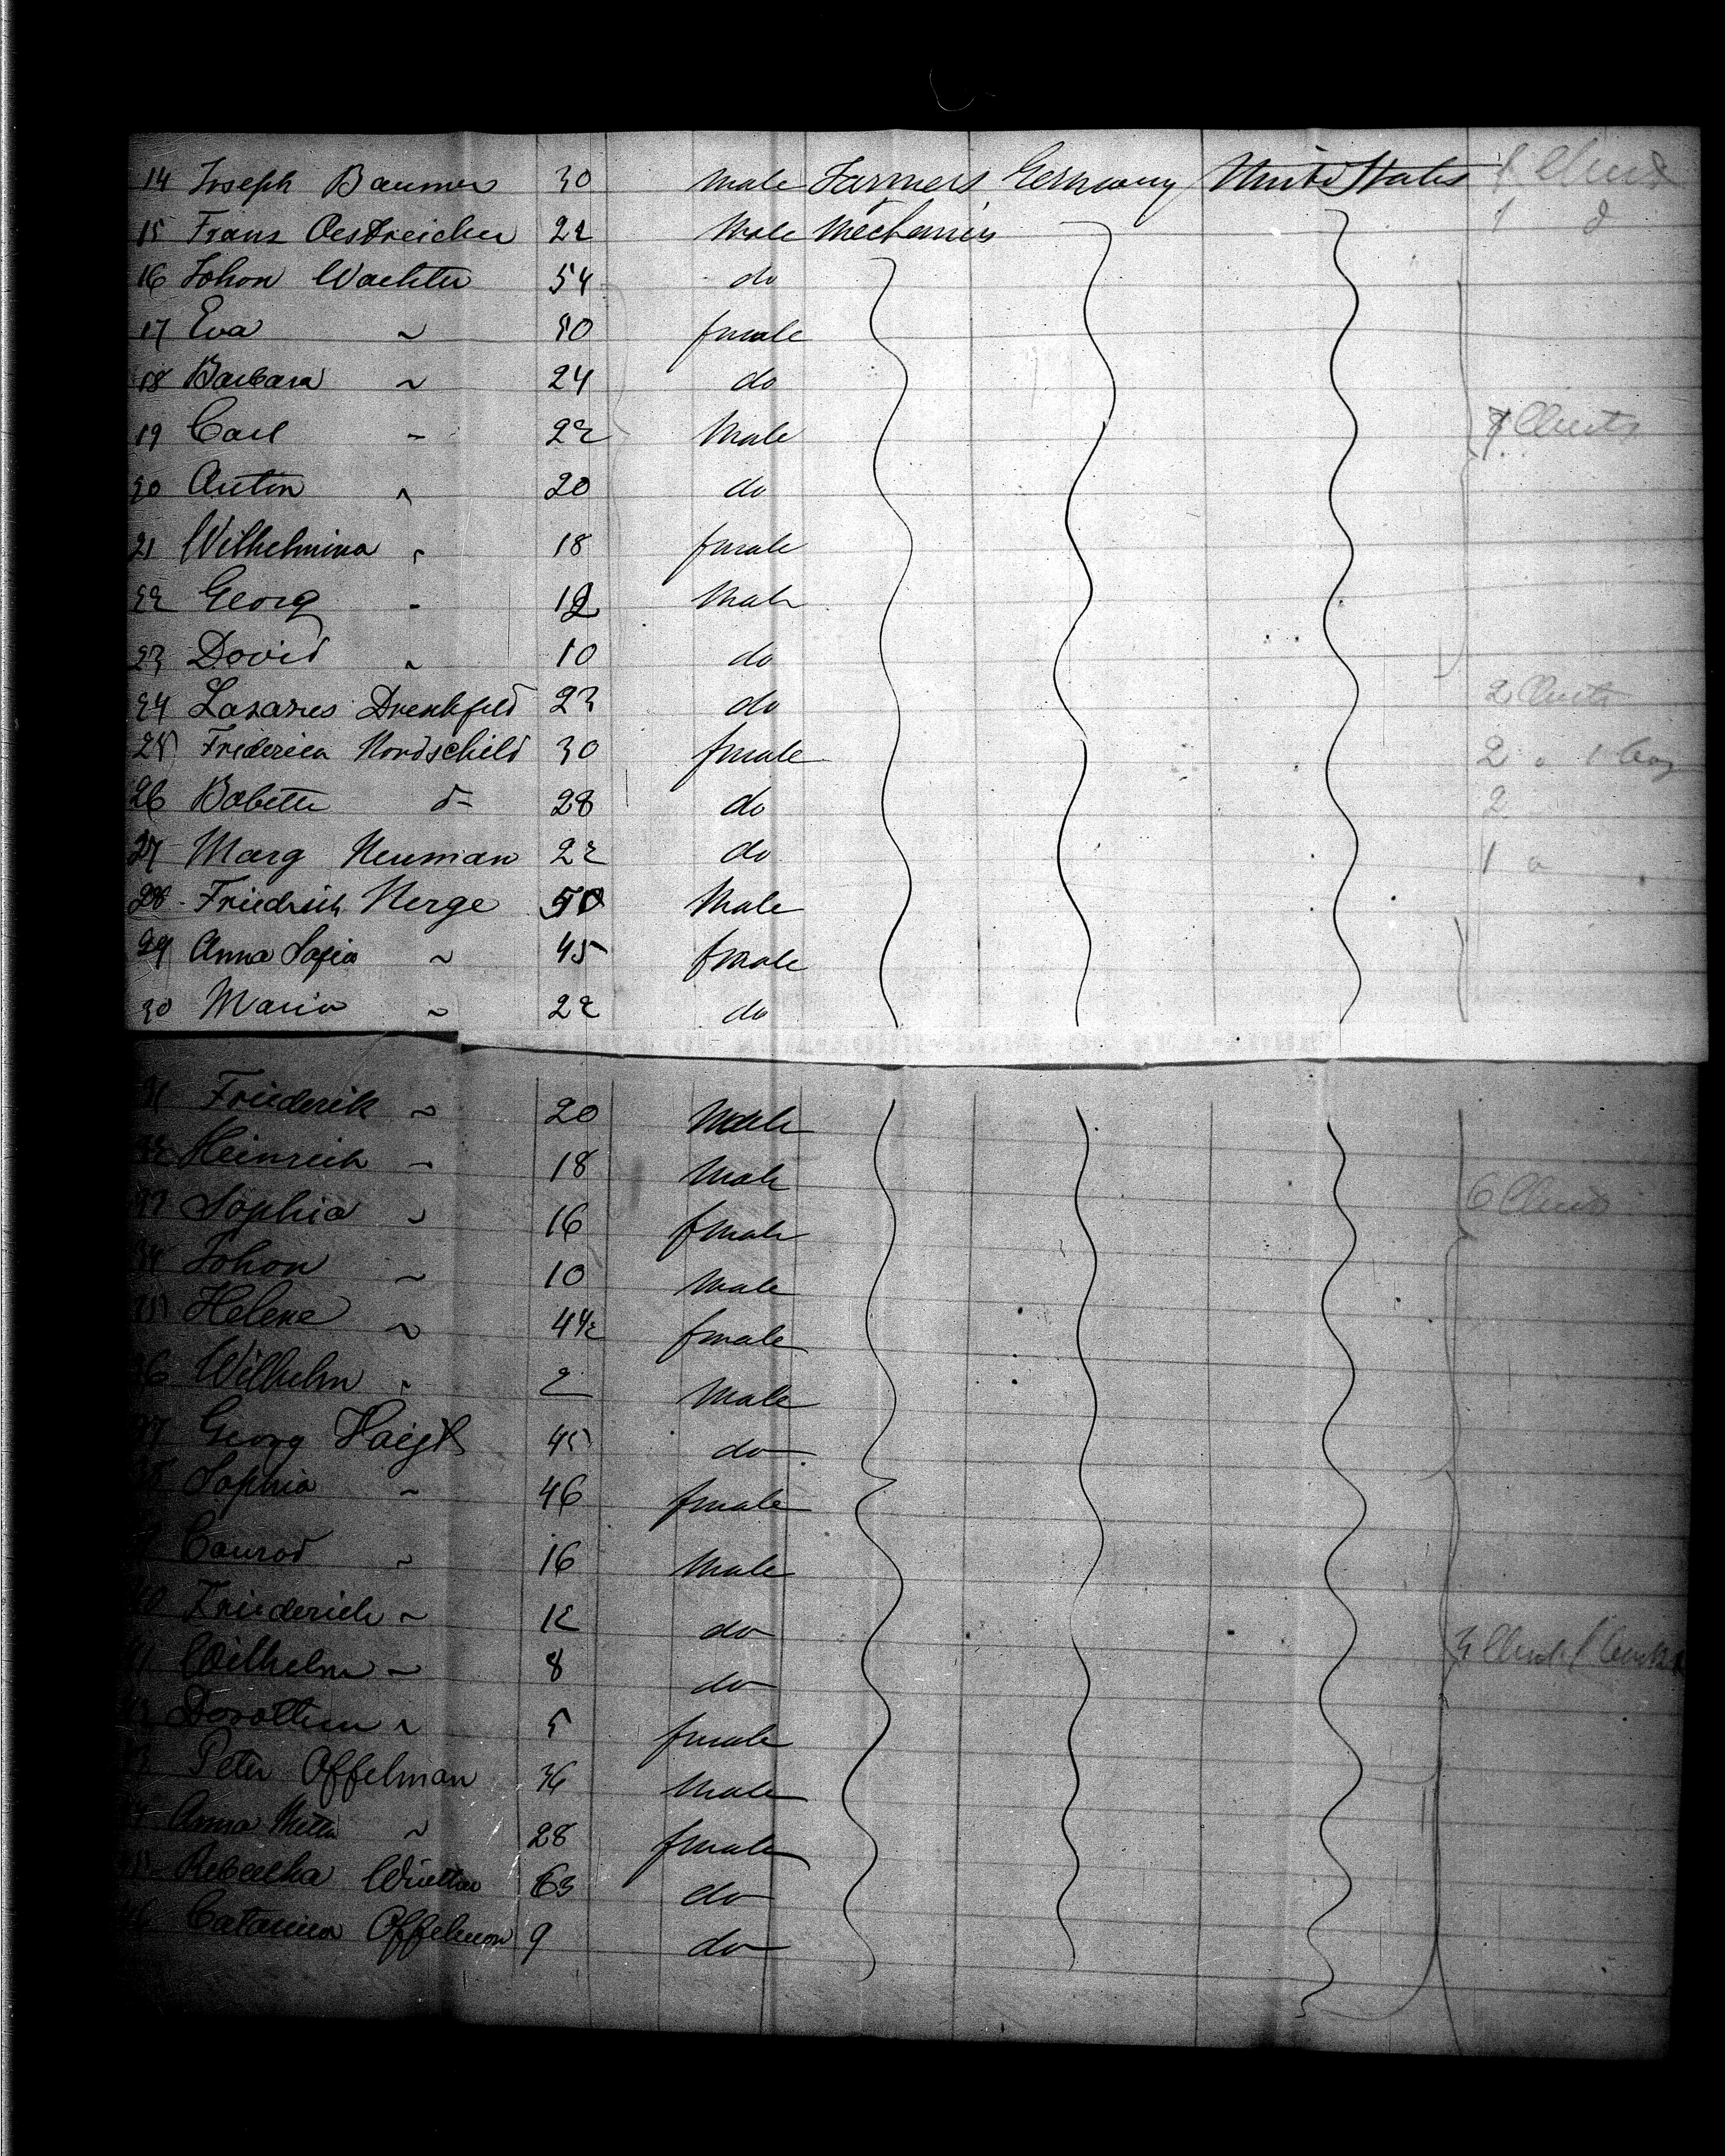 14 Joseph Baumer 30 Male Farmers Germany United States 1 Chest
15 Franz Oestreicher 22 Male Mechanics 1 d
16 Johon Wachter 54 do
17 Eva ~ 50 female
18 Barbara ~ 24 do
19 Carl ~ 22 Male 7 Chests
20 Anton ~ 20 do
21 Wilhelmina ~ 18 female
22 Georg ~ 12 Male
23 David ~ 10 do
24 Lazarus 23 do 2 Chests
25 Friderica Nordschild 30 female 2 " 1 bag
26 Babette do 28 do 2
27 Marg Neuman 22 do 1 "
28 Friedrich Nerge 50 Male
29 Anna Sofia ~ 45 female
30 Maria ~ 22 do
31 Friederik ~ 20 Male
32 Heinrich ~ 18 Male
33 Sophia ~ 16 female 6 Chests
34 Johon ~ 10 Male
35 Helene ~ 4 1/2 female
36 Wilhelm ~ 2 Male
37 Georg 45 do
38 Sophia ~ 46 female
39 Conrad ~ 16 Male
40 Friederich ~ 12 do
41 Wilhelm ~ 8 do 3 Chests 1
42 Dorothea ~ 5 female
43 Peter Offelman 36 Male
44 Anna Metta ~ 28 female
45 Rebecka 63 do
46 Catarina Offelman 9 do